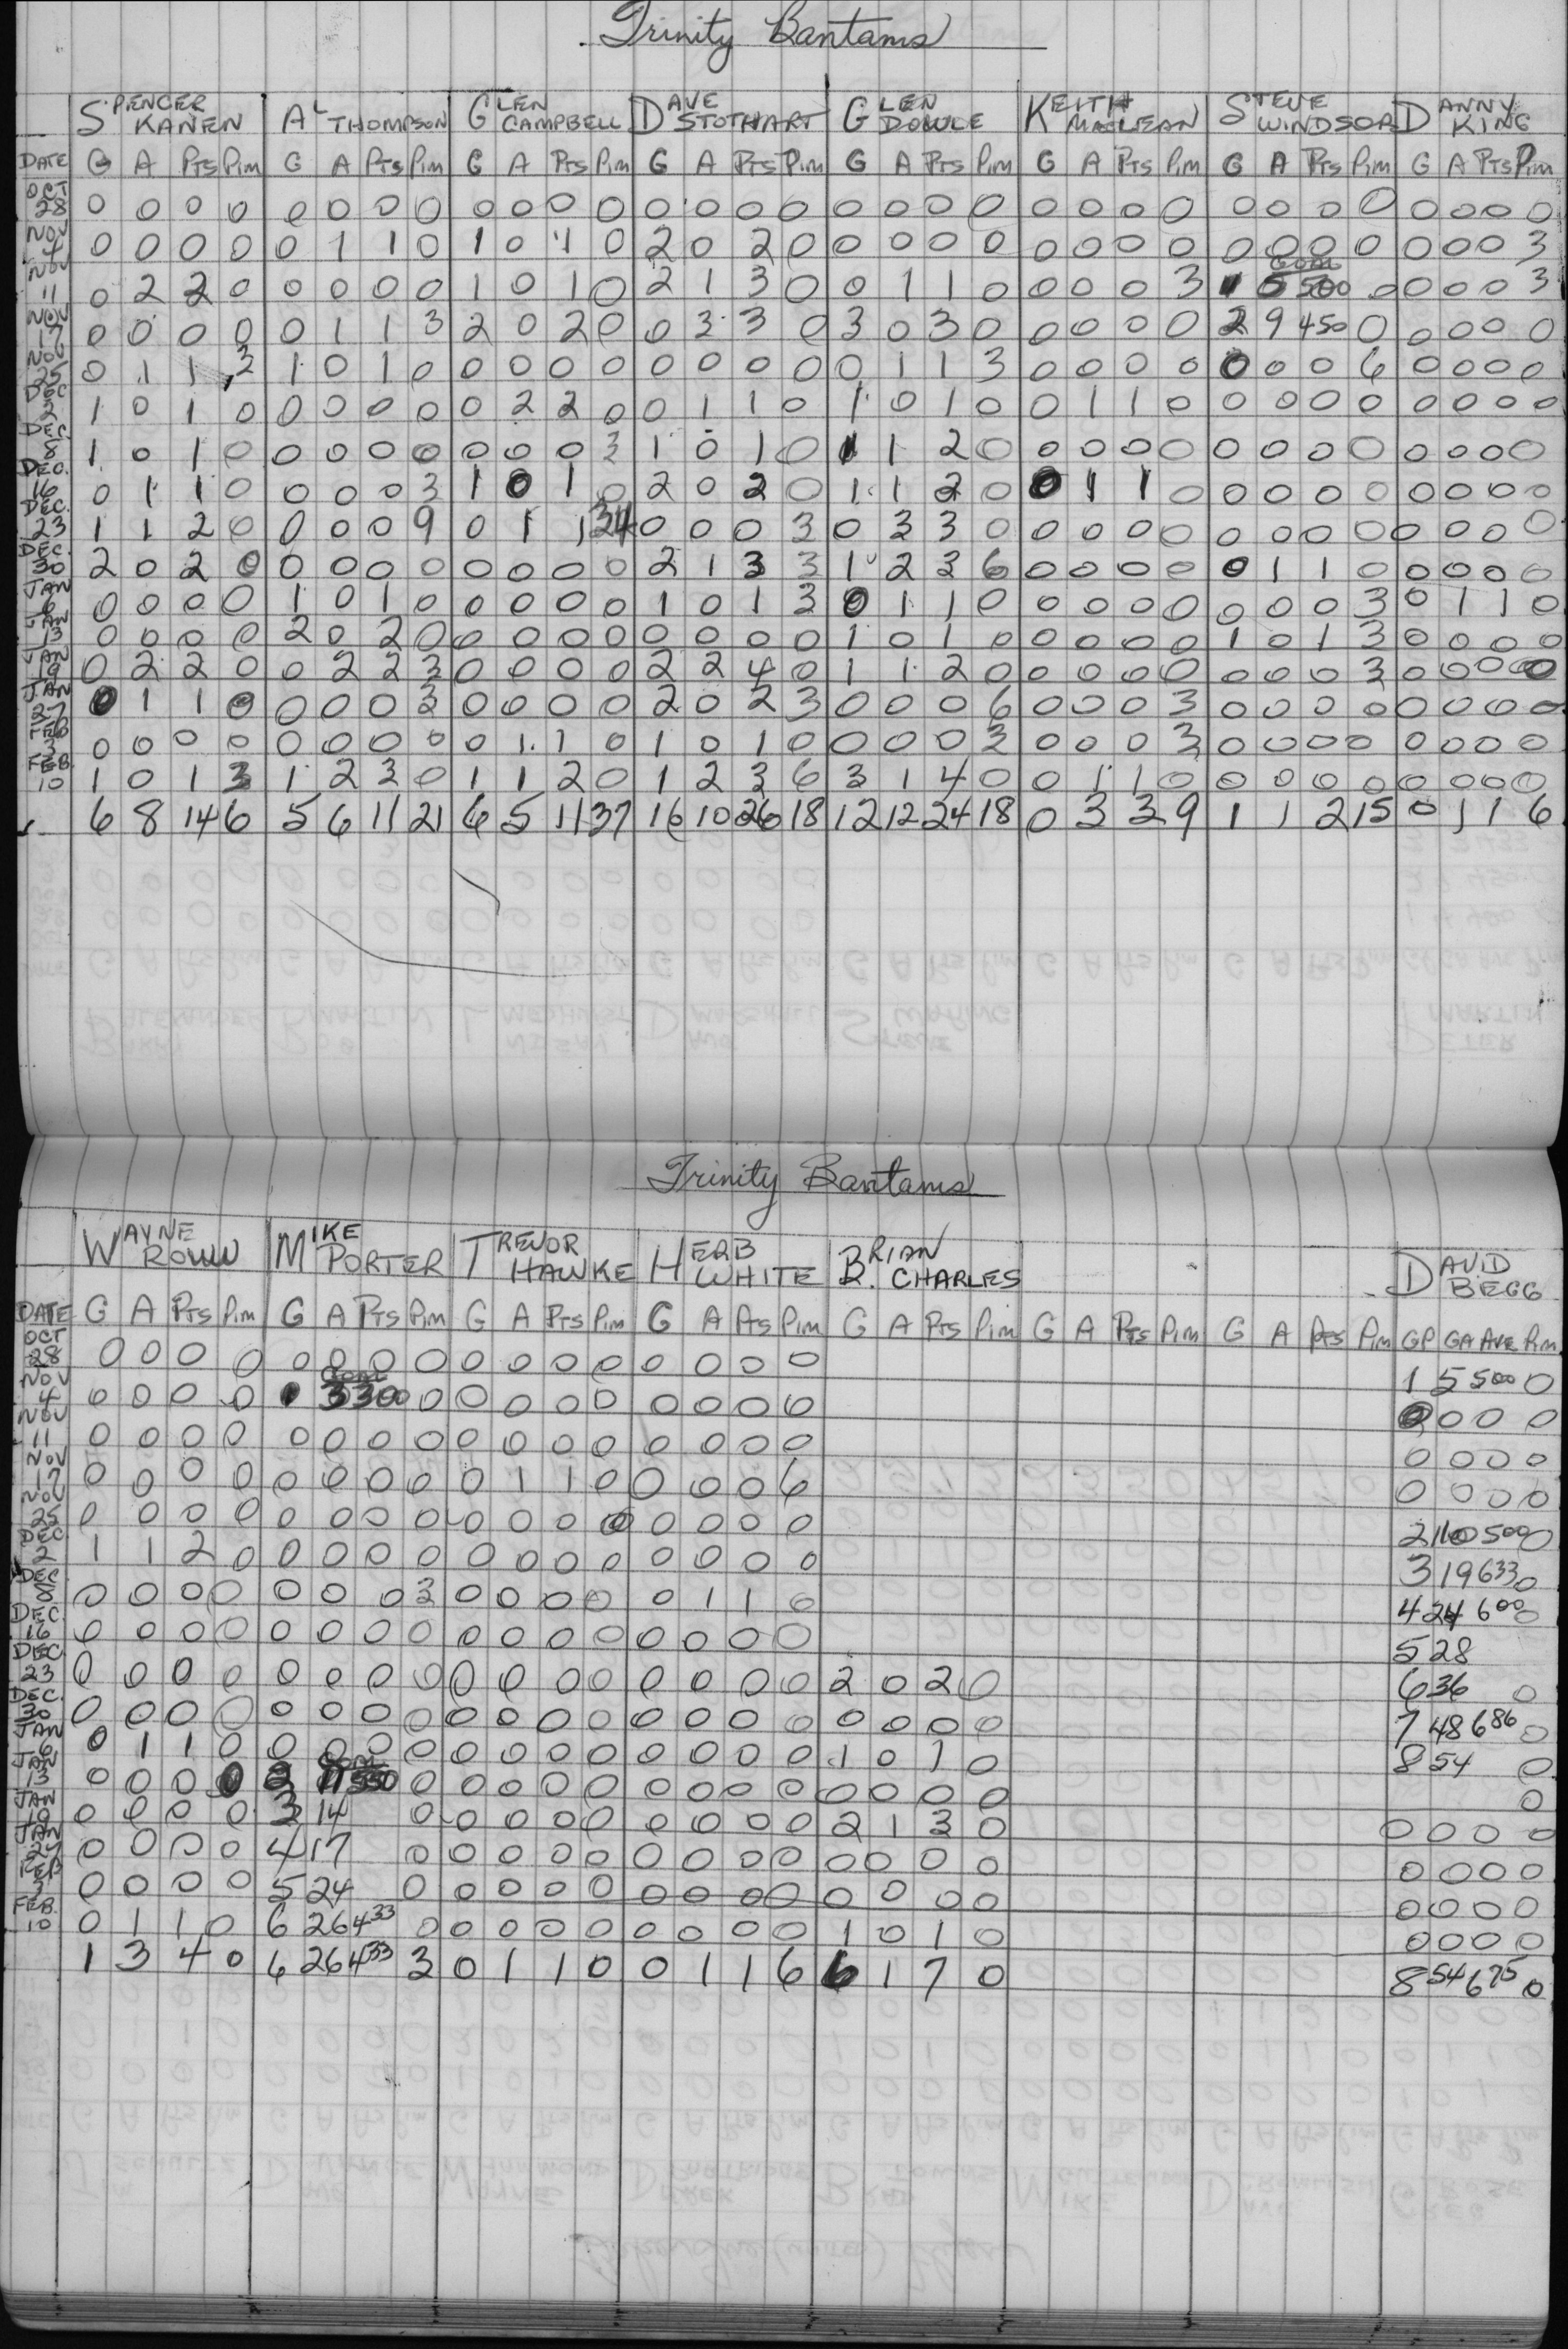 Trinity Bantams
SPENCER KANEN AL THOMPSON GLEN CAMPBELL DAVE STOTHART GLEN DOWLE KEITH MACLEAN STEVE WINDSOR DANNY KING
DATE G A PTS Pim G A PTS Pim G A PTS Pim G A PTS Pim G A PTS Pim G A PTS Pim G A PTS Pim G A PTS Pim
OCT 28 0 0 0 0 0 0 0 0 0 0 0 0 0 0 0 0 0 0 0 0 0 0 0 0 0 0 0 0 0 0 0 0
NOV 4 0 0 0 0 0 1 1 0 1 0 1 0 2 0 2 0 0 0 0 0 0 0 0 0 0 0 0 0 0 0 0 3
NOV 11 0 2 2 0 0 0 0 0 1 0 1 0 2 1 3 0 0 1 1 0 0 0 0 3 1 GOAL 5 500 0 0 0 0 3
NOV 17 0 0 0 0 0 1 1 3 2 0 2 0 0 3 3 0 3 0 3 0 0 0 0 0 2 9 450 0 0 0 0 0
NOV 25 0 1 1 3 1 0 1 0 0 0 0 0 0 0 0 0 0 1 1 3 0 0 0 0 0 0 0 6 0 0 0 0
DEC 2 1 0 1 0 0 0 0 0 0 2 2 0 0 1 1 0 1 0 1 0 0 1 1 0 0 0 0 0 0 0 0 0
DEC. 8 1 0 1 0 0 0 0 0 0 0 0 3 1 0 1 0 1 1 2 0 0 0 0 0 0 0 0 0 0 0 0 0
DEC. 16 0 1 1 0 0 0 0 3 1 0 1 0 2 0 2 0 1 1 2 0 0 1 1 0 0 0 0 0 0 0 0 0
DEC. 23 1 1 2 0 0 0 0 9 0 1 1 34 0 0 0 3 0 3 3 0 0 0 0 0 0 0 0 0 0 0 0 0
DEC. 30 2 0 2 0 0 0 0 0 0 0 0 0 2 1 3 3 1 2 3 6 0 0 0 0 0 1 1 0 0 0 0 0
JAN 6 0 0 0 0 1 0 1 0 0 0 0 0 1 0 1 3 0 1 1 0 0 0 0 0 0 0 0 3 0 1 1 0
JAN 13 0 0 0 0 2 0 2 0 0 0 0 0 0 0 0 0 1 0 1 0 0 0 0 0 1 0 1 3 0 0 0 0
JAN 19 0 2 2 0 0 2 2 3 0 0 0 0 2 2 4 0 1 1 2 0 0 0 0 0 0 0 0 3 0 0 0 0
JAN 27 0 1 1 0 0 0 0 3 0 0 0 0 2 0 2 3 0 0 0 6 0 0 0 3 0 0 0 0 0 0 0 0
FEB 3 0 0 0 0 0 0 0 0 0 1 1 0 1 0 1 0 0 0 0 3 0 0 0 3 0 0 0 0 0 0 0 0
FEB. 10 1 0 1 3 1 2 3 0 1 1 2 0 1 2 3 6 3 1 4 0 0 1 1 0 0 0 0 0 0 0 0 0
6 8 14 6 5 6 11 21 6 5 11 37 16 10 26 18 12 12 24 18 0 3 3 9 1 1 2 15 0 1 1 6
Trinity Bantams
WAYNE ROWW MIKE PORTER TREVOR HAWKE HERB WHITE BRIAN CHARLES DAVID BEGG
DATE G A PTS Pim G A PTS Pim G A PTS Pim G A PTS Pim G A PTS Pim G A PTS Pim G A PTS Pim GP GA AVE Pim
OCT 28 0 0 0 0 0 0 0 0 0 0 0 0 0 0 0 0 1 5 500 0
NOV 4 0 0 0 0 1 GOAL 3 300 0 0 0 0 0 0 0 0 0 0 0 0 0
NOV 11 0 0 0 0 0 0 0 0 0 0 0 0 0 0 0 0 0 0 0 0
NOV 17 0 0 0 0 0 0 0 0 0 1 1 0 0 0 0 6 0 0 0 0
NOV 25 0 0 0 0 0 0 0 0 0 0 0 0 0 0 0 0 2 10 500 0
DEC 2 1 1 2 0 0 0 0 0 0 0 0 0 0 0 0 0 3 19 633 0
DEC. 8 0 0 0 0 0 0 0 3 0 0 0 0 0 1 1 0 4 24 600 0
DEC. 16 0 0 0 0 0 0 0 0 0 0 0 0 0 0 0 0 5 28
DEC. 23 0 0 0 0 0 0 0 0 0 0 0 0 0 0 0 0 2 0 2 0 6 36 0
DEC. 30 0 0 0 0 0 0 0 0 0 0 0 0 0 0 0 0 0 0 0 0 7 48 686 0
JAN 6 0 1 1 0 0 0 0 0 0 0 0 0 0 0 0 0 1 0 1 0 8 54 0
JAN 13 0 0 0 0 2 GOAL 11 550 0 0 0 0 0 0 0 0 0 0 0 0 0 0
JAN 19 0 0 0 0 3 14 0 0 0 0 0 0 0 0 0 2 1 3 0 0 0 0 0
JAN 27 0 0 0 0 4 17 0 0 0 0 0 0 0 0 0 0 0 0 0 0 0 0 0
FEB 3 0 0 0 0 5 24 0 0 0 0 0 0 0 0 0 0 0 0 0 0 0 0 0
FEB. 10 0 1 1 0 6 26 433 0 0 0 0 0 0 0 0 0 1 0 1 0 0 0 0 0
1 3 4 0 6 26 433 3 0 1 1 0 0 1 1 6 6 1 7 0 8 54 675 0